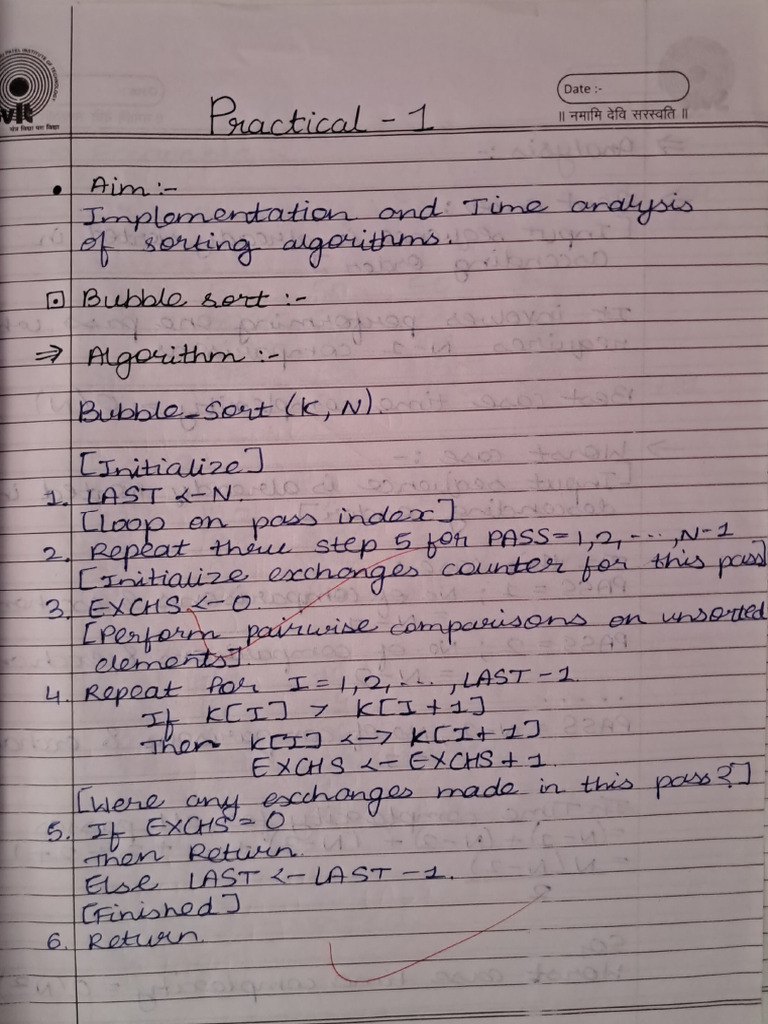 Date :-
॥ नमामि देवि सरस्वति ॥
Practical - 1
• Aim :-
Implementation and Time analysis
of sorting algorithms.
⊡ Bubble sort :-
⇒ Algorithm :-
Bubble-Sort (K, N)
[Initialize]
1. LAST <- N.
[Loop on pass index]
2. Repeat there step 5 for PASS = 1, 2, ..., N-1
[Initialize exchanges counter for this pass]
3. EXCHS <- 0.
[Perform pairwise comparisons on unsorted
elements].
4. Repeat for I = 1, 2, ..., LAST - 1.
If K[I] > K[I+1]
Then K[I] <-> K[I+1]
EXCHS <- EXCHS + 1.
[Were any exchanges made in this pass?]
5. If EXCHS = 0
Then Return.
Else LAST <- LAST - 1.
[Finished]
6. Return.